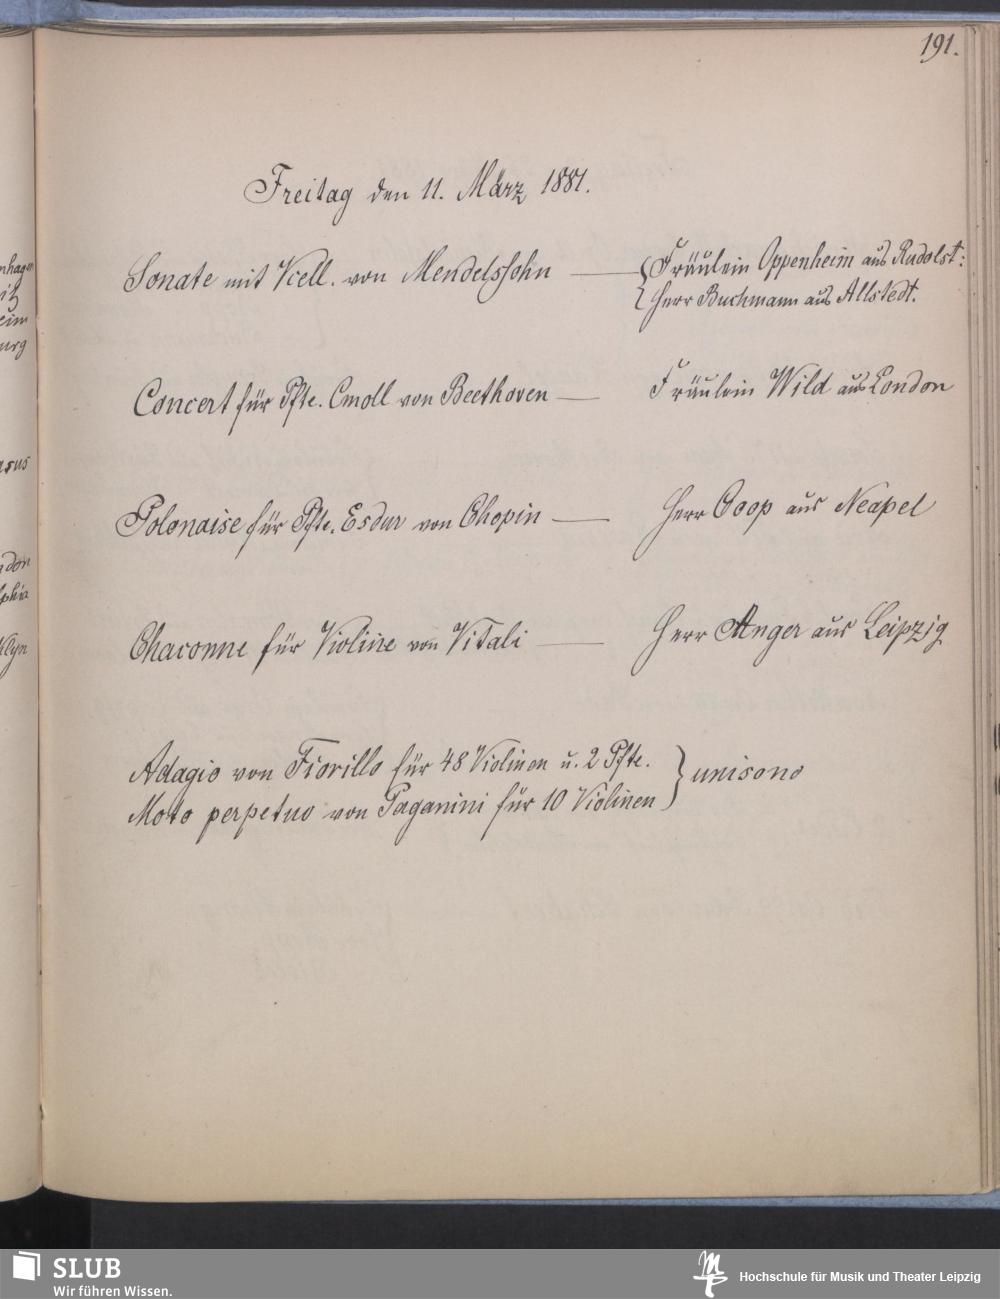 191.
Freitag den 11. März 1881.
Sonate mit Vcell. von Mendelssohn — { Fräulein Oppenheim aus Rudolst:
Herr Buchmann aus Allstedt.
Concert für Pfte. Cmoll von Beethoven — Fräulein Wild aus London
Polonaise für Pfte. Esdur von Chopin — Herr Coop aus Neapel
Chaconne für Violine von Vitali — Herr Anger aus Leipzig
Adagio von Fiorillo für 48 Violinen u. 2 Pfte. } unisono
Moto perpetuo von Paganini für 10 Violinen
SLUB
Wir führen Wissen.
Hochschule für Musik und Theater Leipzig